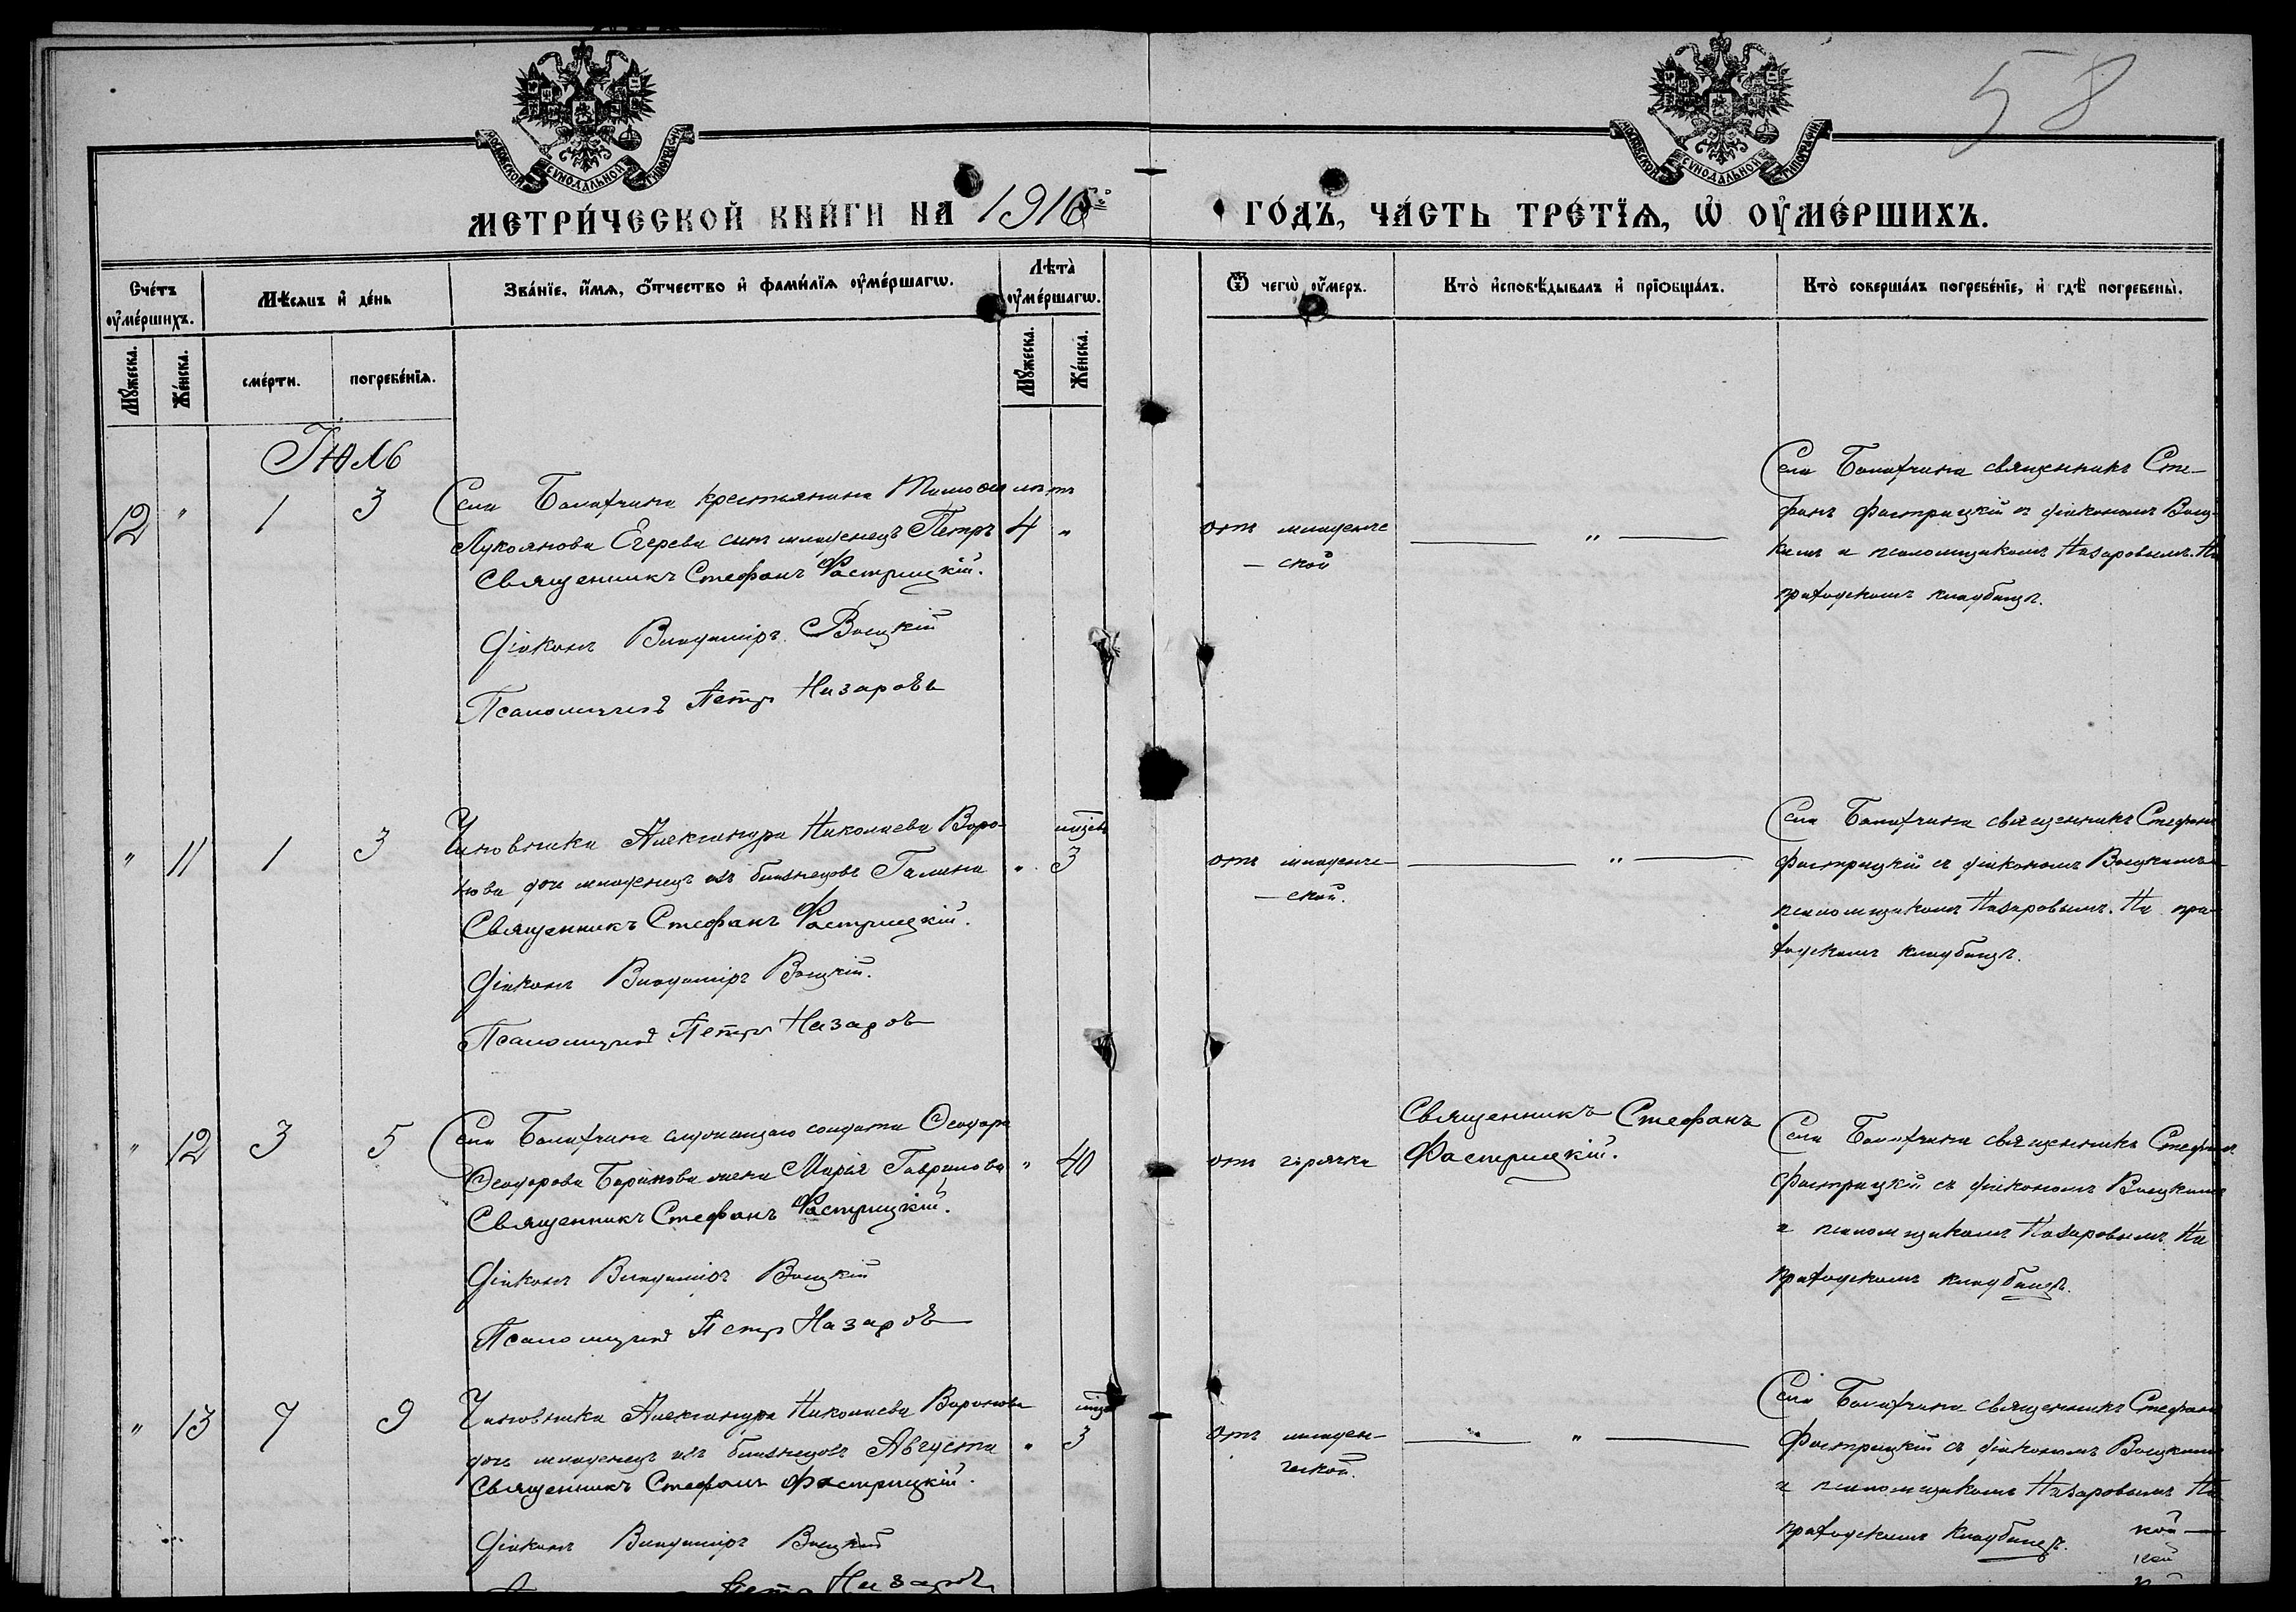 58
МОСКОВСКОЙ СѴНОДАЛЬНОЙ ТИПОГРАФІИ
МОСКОВСКОЙ СѴНОДАЛЬНОЙ ТИПОГРАФІИ
МЕТРИ́ЧЕСКОЙ КНИ́ГИ НА 1916 го́
ГО́ДЪ, ЧА́СТЬ ТРЕ́ТЇѦ, Ѡ҆ ОУ҆МЕ́РШИХЪ.
Сче́тъ оу҆ме́ршихъ.
Мꙋ́жеска.
Же́нска.
Мѣ́сѧцъ и҆ де́нь
сме́рти.
погребе́нїѧ.
Зва́нїе, и҆́мѧ, ѻ҆́тчество и҆ фами́лїѧ оу҆ме́ршагѡ.
Лѣта̀ оу҆ме́ршагѡ.
Мꙋ́жеска.
Же́нска.
Ѿ чегѡ̀ оу҆́меръ.
Кто̀ и҆сповѣ́дывалъ и҆ прїѻбща́лъ.
Кто̀ соверша́лъ погребе́нїе, и҆ гдѣ̀ погребены̀.
Іюль
12 " 1 3
Села Балахчина крестьянина Тимофея
Лукоянова Егерева сынъ младенецъ Петръ
лѣтъ
4 "
Священникъ Стефанъ Фастрицкій.
Діаконъ Владиміръ Воецкій
Псаломщикъ Петръ Назаровъ
отъ младенче
– ской
— " —
Села Балахчина священникъ Сте-
фанъ Фастрицкій съ діакономъ Воец-
кимъ и псаломщикомъ Назаровымъ. На
приходскомъ кладбищѣ.
" 11 1 3
Чиновника Александра Николаева Воро-
нова дочь младенецъ изъ близнецовъ Галина
мѣсяц
" 3
Священникъ Стефанъ Фастрицкій.
Діаконъ Владиміръ Воецкій.
Псаломщикъ Петръ Назаровъ
отъ младенче-
– ской.
— " —
Села Балахчина священникъ Стефанъ
Фастрицкій съ діакономъ Воецкимъ и
псаломщикомъ Назаровымъ. На при-
ходскомъ кладбищѣ.
" 12 3 5
Села Балахчина служащаго солдата Ѳеодора
Ѳеодорова Баринова жена Марія Гаврилова
" 40
Священникъ Стефанъ Фастрицкій.
Діаконъ Владиміръ Воецкій
Псаломщикъ Петръ Назаровъ
отъ горячки
Священникъ Стефанъ
Фастрицкій.
Села Балахчина священникъ Стефанъ
Фастрицкій съ діакономъ Воецкимъ
и псаломщикомъ Назаровымъ. На
приходскомъ кладбищѣ.
" 13 7 9
Чиновника Александра Николаева Воронова
дочь младенецъ изъ близнецовъ Августа
" 3
Священникъ Стефанъ Фастрицкій.
Діаконъ Владиміръ Воецкій
Петръ Назаровъ
отъ младен-
ческой.
— " —
Села Балахчина священникъ Стефанъ
Фастрицкій съ діакономъ Воецкимъ
и псаломщикомъ Назаровымъ На
приходскомъ кладбищѣ.
кой —